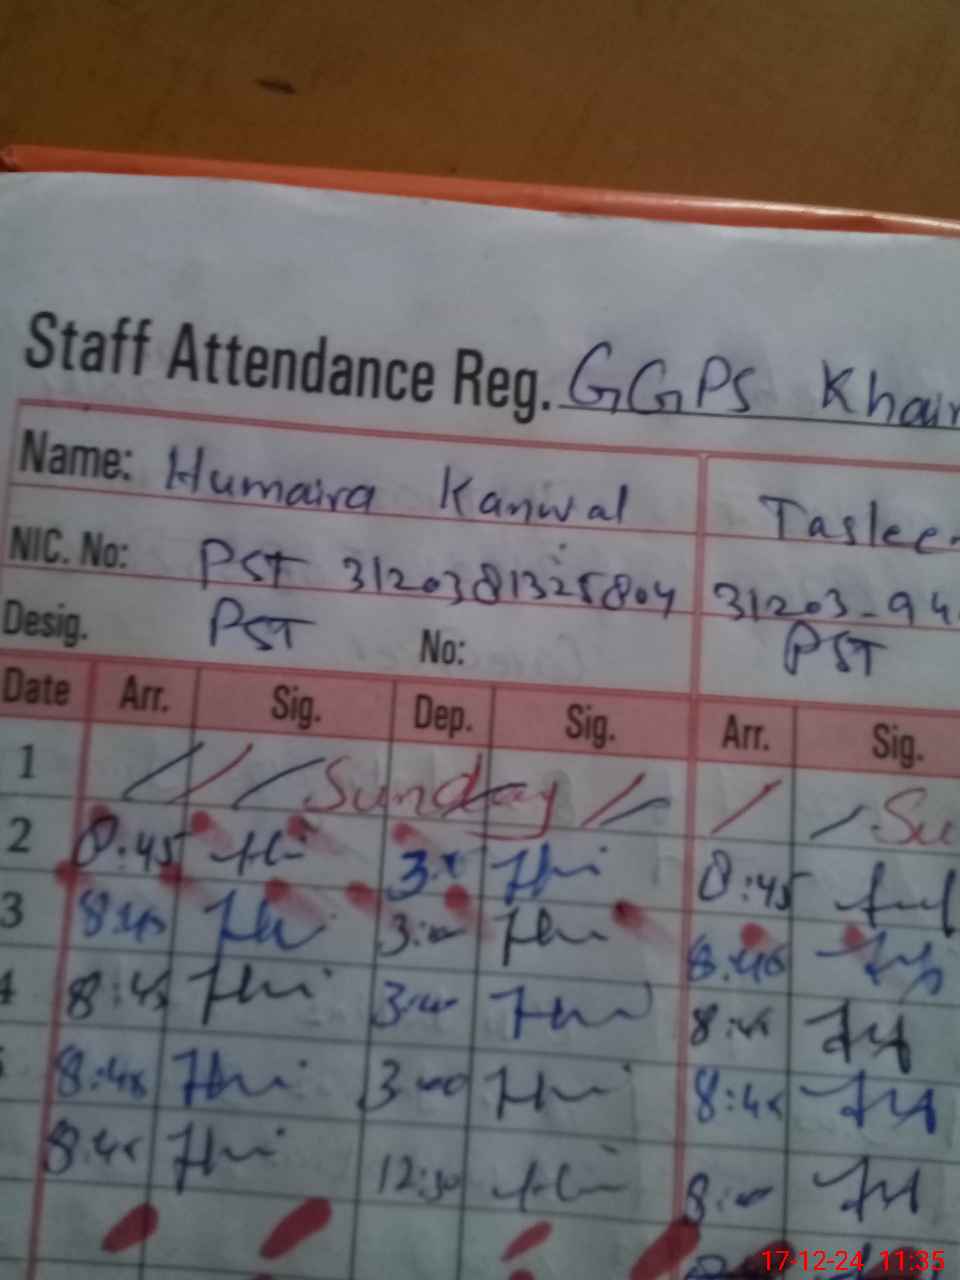 Staff Attendance Reg. GGPS Khair
Name: Humaira Kanwal Taslee
NIC. No: PST 3120381325804 31203-94
Desig. PST No: PST
Date Arr. Sig. Dep. Sig. Arr. Sig.
1 Sunday Su
2 8:45 8:45
3 8:45 3:00 8:45
4 8:45 3:00
8:45 3:00 8:45
8:45 12:30 8:00
17-12-24 11:35